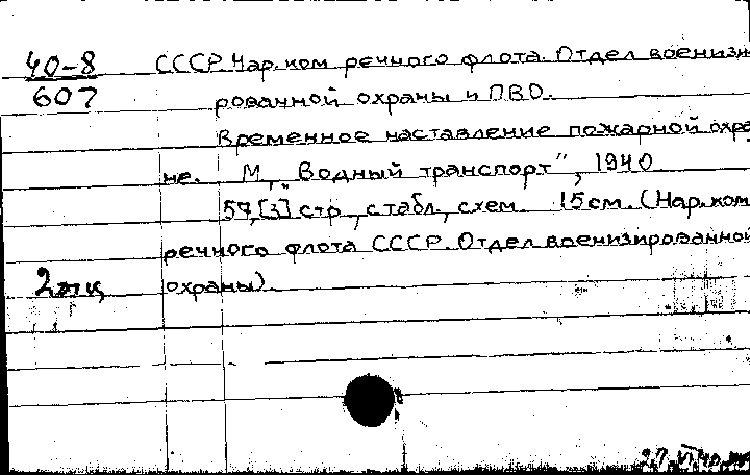 40-8 СССР. Нар. ком речного флота. Отдел военизи
607 рованной охраны и ПВО.
Временное наставление пожарной охра
не. М, „Водный транспорт", 1940
57, [3] стр, с табл., схем. 15 см. (Нар. ком
речного флота СССР. Отдел военизированной
2 отц охраны).
27.VI.40